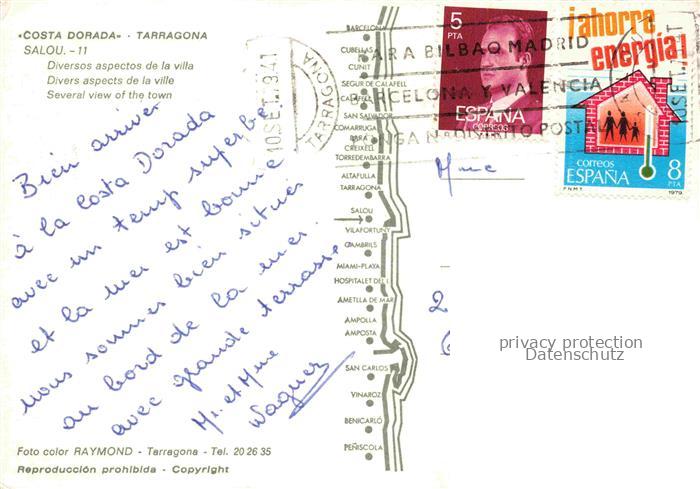 «COSTA DORADA» - TARRAGONA
SALOU. - 11
Diversos aspectos de la villa
Divers aspects de la ville
Several view of the town
Bien arriver
à la Costa Dorada
avec un temp superbe
et la mer est bonne
nous sommes bien situés
au bord de la mer
avec grande terrasse
Mr. et Mme
Wagner
Foto color RAYMOND - Tarragona - Tel. 20 26 35
Reproducción prohibida - Copyright
BARCELONA
CUBELLAS
CUNIT
SEGUR DE CALAFELL
CALAFELL
SAN SALVADOR
COMARRUGA
BARA
CREIXELL
TORREDEMBARRA
ALTAFULLA
TARRAGONA
SALOU
VILAFORTUNY
CAMBRILS
MIAMI-PLAYA
HOSPITALET DEL I.
AMETLLA DE MAR
AMPOLLA
AMPOSTA
SAN CARLOS
VINAROZ
BENICARLÓ
PEÑISCOLA
TARRAGONA
10 SET
PARA BILBAO MADRID
BARCELONA Y VALENCIA
PONGA Nº DISTRITO POSTAL
5
PTA
ESPAÑA
CORREOS
¡ahorra
energía!
CORREOS
ESPAÑA
8
PTA
F.N.M.T.
1979
Mme
2
privacy protection
Datenschutz